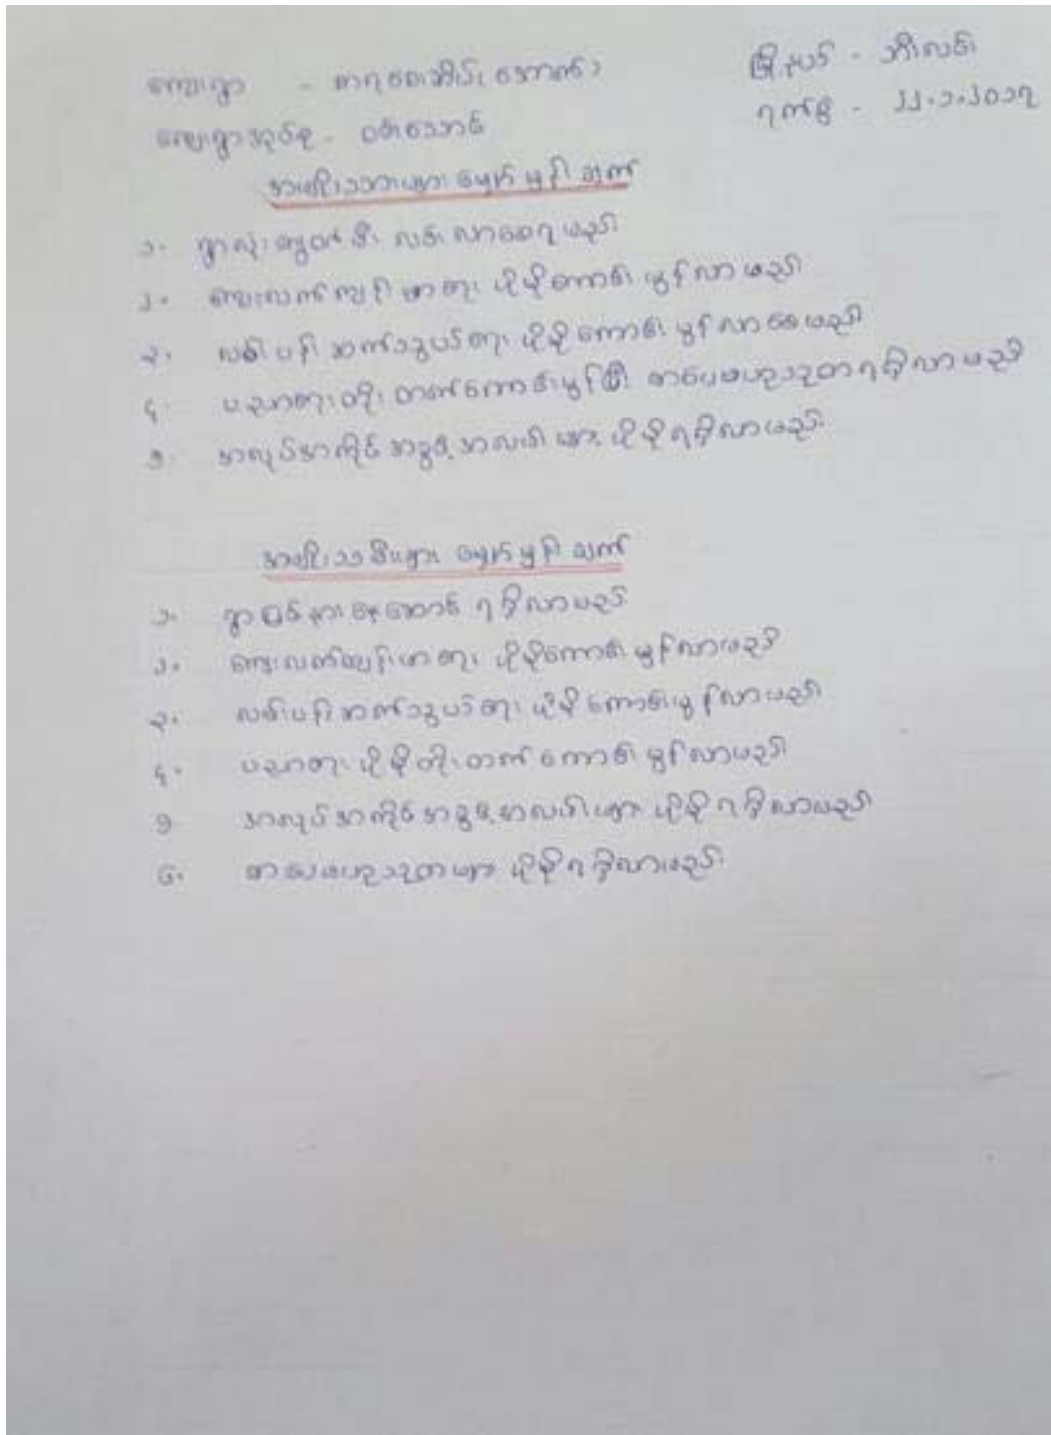 ကျေးရွာ - မြို့နယ် - ဘီးလင်း
ကျေးရွာအုပ်စု - ဝင်းသောင် ရက်စွဲ - ၂၂.၁.၂၀၁၇
အမျိုးသားများ မျှော်မှန်းချက်
၁. ရွာလုံးကျွတ်မီး လင်းလာစေရမည်။
၂. ကျေးလက်ကျန်းမာရေး ပိုမိုကောင်းမွန်လာမည်။
၃. လမ်းပန်းဆက်သွယ်ရေး ပိုမိုကောင်းမွန်လာစေမည်။
၄. ပညာရေးတိုးတက်ကောင်းမွန်ပြီး စာပေဗဟုသုတရရှိလာမည်။
၅. အလုပ်အကိုင်အခွင့်အလမ်းများ ပိုမိုရရှိလာမည်။
အမျိုးသမီးများ မျှော်မှန်းချက်
၁. ရွာမြင်နား ရရှိလာမည်။
၂. ကျေးလက်ကျန်းမာရေး ပိုမိုကောင်းမွန်လာမည်။
၃. လမ်းပန်းဆက်သွယ်ရေး ပိုမိုကောင်းမွန်လာမည်။
၄. ပညာရေးပိုမိုတိုးတက်ကောင်းမွန်လာမည်။
၅. အလုပ်အကိုင်အခွင့်အလမ်းများ ပိုမိုရရှိလာမည်။
၆. စာပေဗဟုသုတများ ပိုမိုရရှိလာမည်။